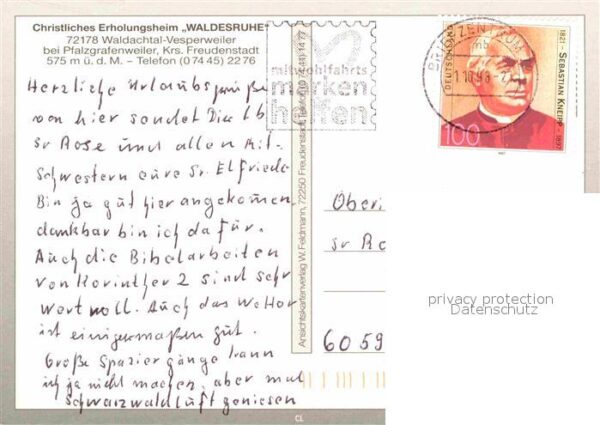 Christliches Erholungsheim „WALDESRUHE"
72178 Waldachtal-Vesperweiler
bei Pfalzgrafenweiler, Krs. Freudenstadt
575 m ü. d. M. – Telefon (0 74 45) 22 76
Herzliche Urlaubsgrüße
von hier sendet Dir lb
Sr Rose und allen Mit-
Schwestern eure Sr. Elfriede
Bin ja gut hier angekommen,
dankbar bin ich dafür.
Auch die Bibelarbeiten
von Korinther 2 sind sehr
wertvoll. Auch das Wetter
ist einigermaßen gut.
Große Spaziergänge kann
ich ja nicht machen, aber mal
Schwarzwaldluft geniesen
mit wohlfahrts
marken
helfen
BRIEFZENTRUM
DEUTSCHLAND
100
1821 - SEBASTIAN KNEIPP - 1897
1997
Ansichtskartenverlag W. Feldmann, 72250 Freudenstadt, Telefon (0 74 41) 14 77
Sr
6059
privacy protection
Datenschutz
CL